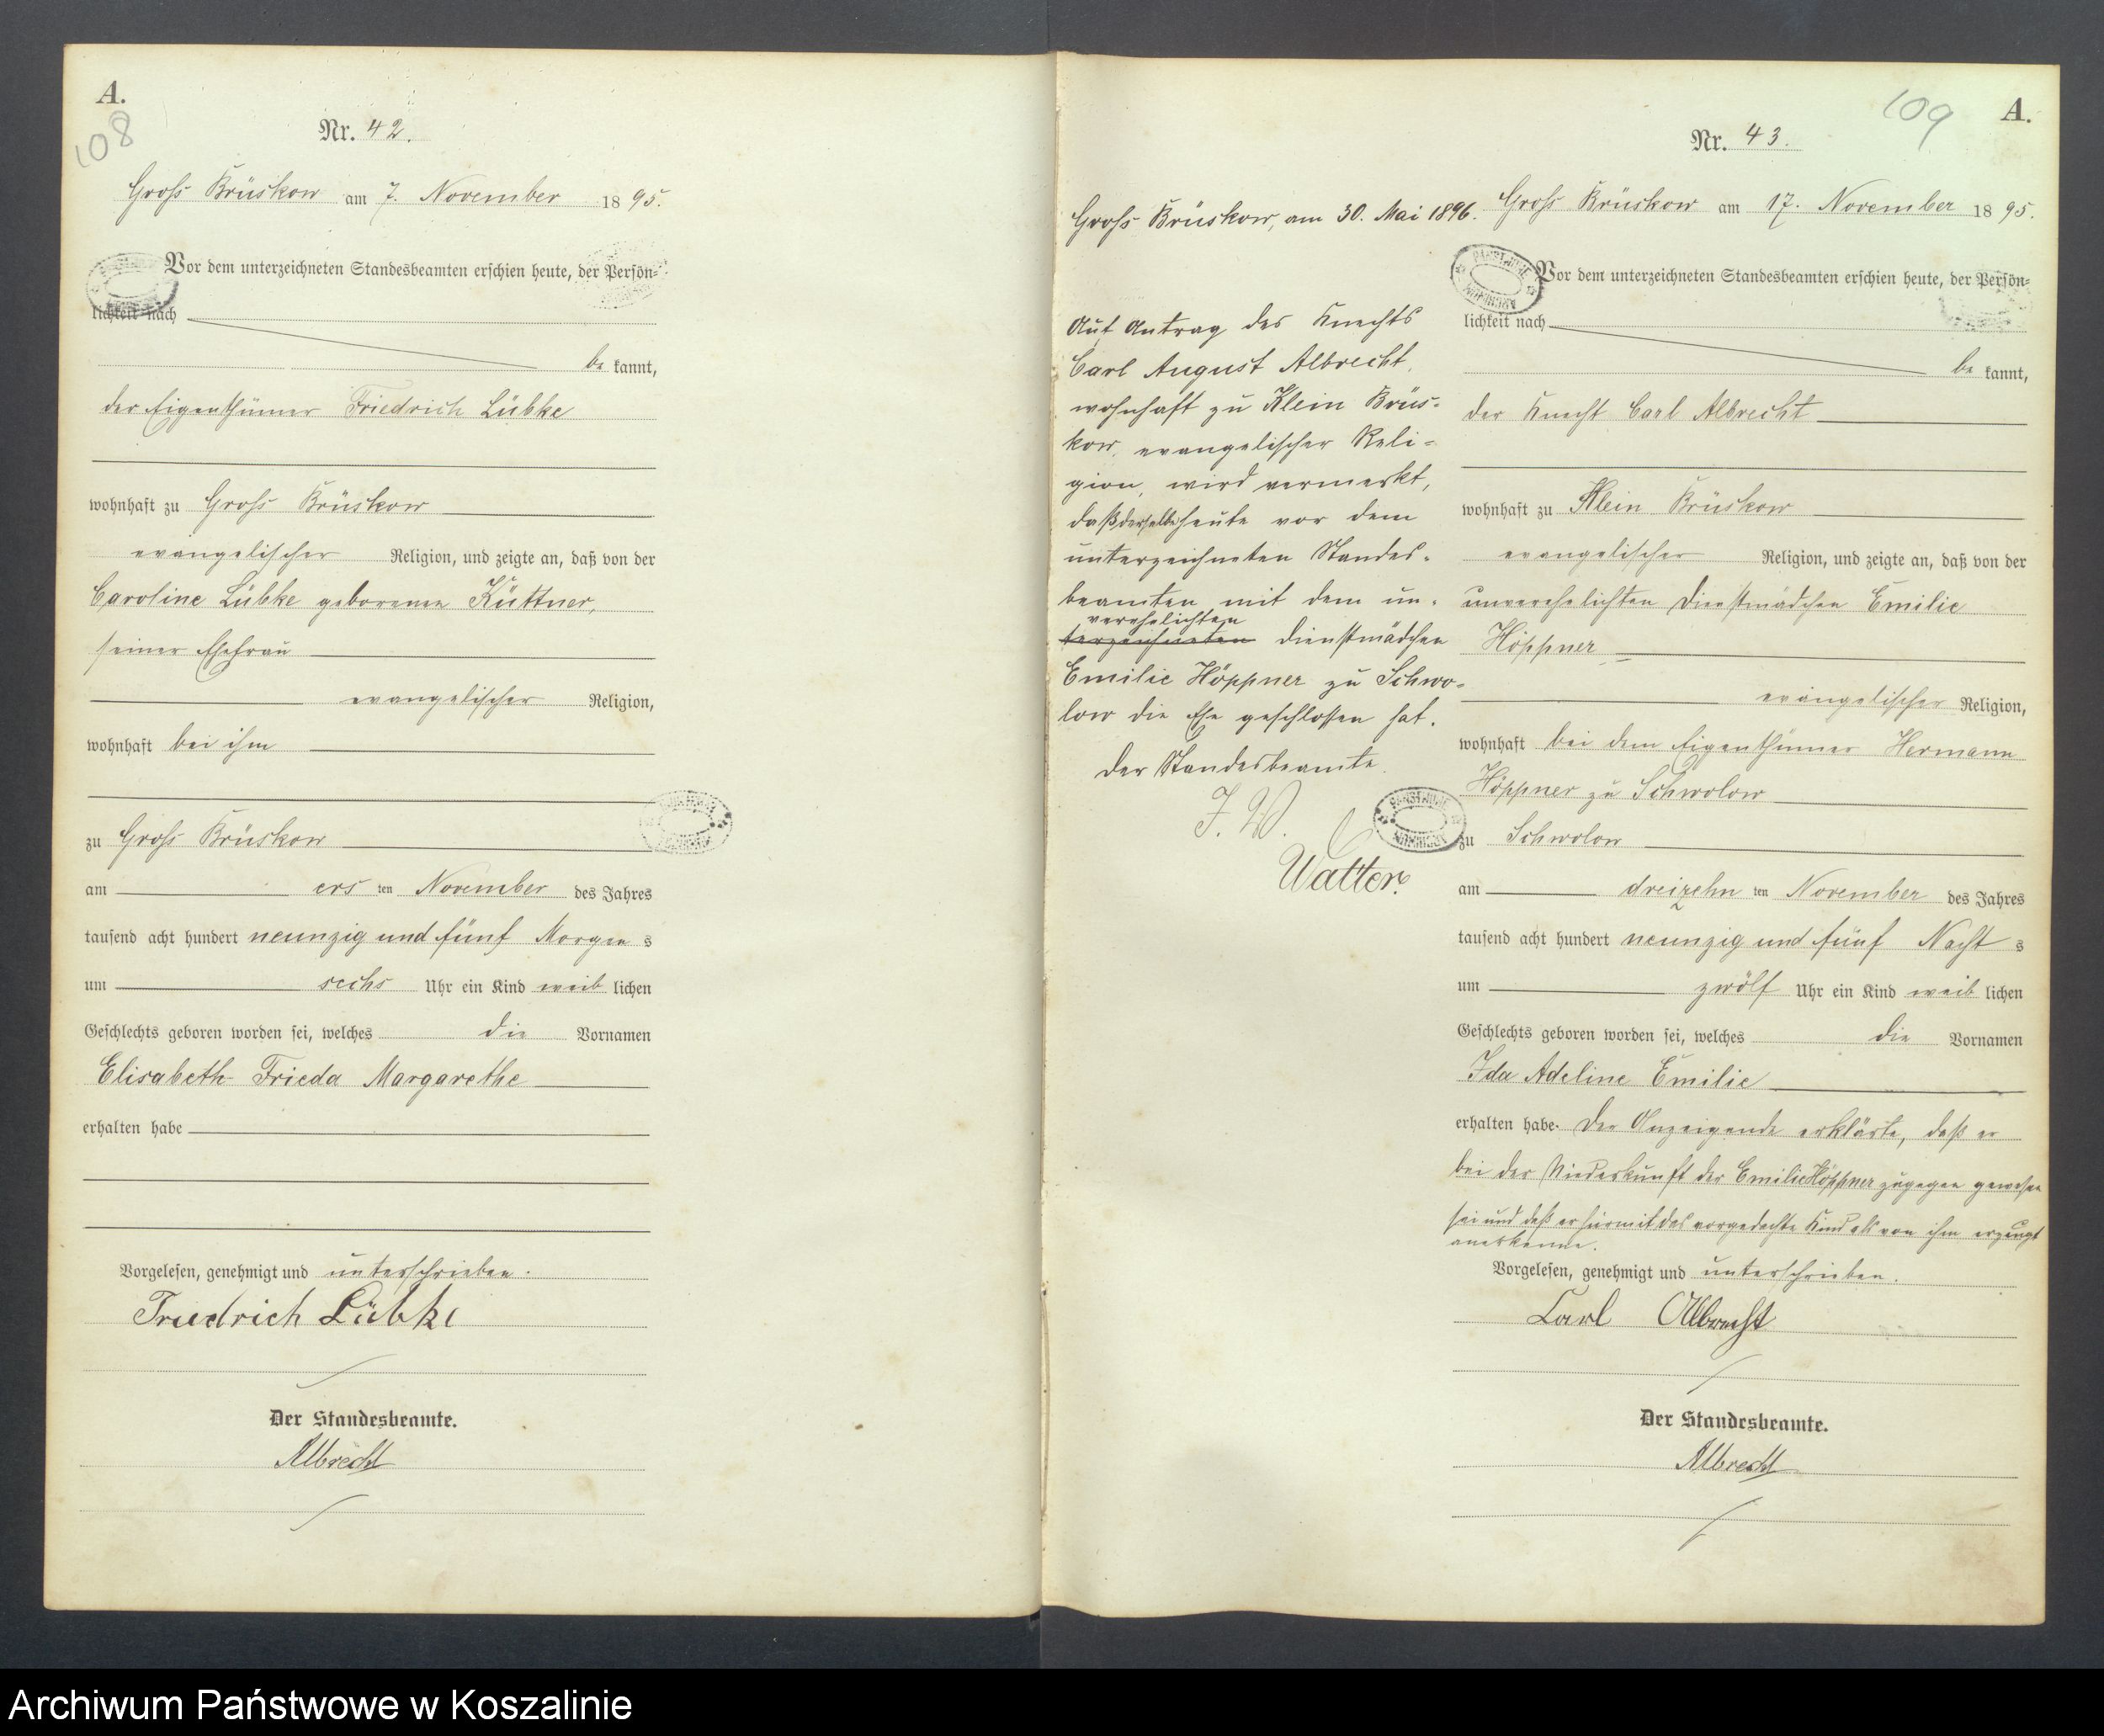 A.
108
Nr. 42.
Groß Brüskow am 7. November 1895.
Vor dem unterzeichneten Standesbeamten erschien heute, der Persön-
lichkeit nach
be kannt,
der Eigenthümer Friedrich Lübke
wohnhaft zu Groß Brüskow
evangelischer Religion, und zeigte an, daß von der
Caroline Lübke geborenen Küttner,
seiner Ehefrau
evangelischer Religion,
wohnhaft bei ihm
zu Groß Brüskow
am ers ten November des Jahres
tausend acht hundert neunzig und fünf Morgen s
um sechs Uhr ein Kind weib lichen
Geschlechts geboren worden sei, welches die Vornamen
Elisabeth Frieda Margarethe
erhalten habe
Vorgelesen, genehmigt und unterschrieben.
Friedrich Lübke
Der Standesbeamte.
Albrecht
109
A.
Nr. 43.
Groß Brüskow, am 30. Mai 1896.
Auf Antrag des Knechts
Carl August Albrecht,
wohnhaft zu Klein Brüs-
kow, evangelischer Reli-
gion, wird vermerkt,
daß derselbe heute vor dem
unterzeichneten Standes-
beamten mit dem un-
verehelichten
terzeichneten Dienstmädchen
Emilie Höppner zu Schwo-
low die Ehe geschlossen hat.
Der Standesbeamte.
J. V.
Walter.
Groß Brüskow am 17. November 1895.
Vor dem unterzeichneten Standesbeamten erschien heute, der Persön-
lichkeit nach
be kannt,
der Knecht Carl Albrecht
wohnhaft zu Klein Brüskow
evangelischer Religion, und zeigte an, daß von der
unverehelichten Dienstmädchen Emilie
Höppner
evangelischer Religion,
wohnhaft bei dem Eigenthümer Hermann
Höppner zu Schwolow
zu Schwolow
am dreizehn ten November des Jahres
tausend acht hundert neunzig und fünf Nacht s
um zwölf Uhr ein Kind weib lichen
Geschlechts geboren worden sei, welches die Vornamen
Ida Adeline Emilie
erhalten habe. Der Anzeigende erklärte, daß er
bei der Niederkunft der Emilie Höppner zugegen gewesen
sei und daß er hiermit das vorgedachte Kind als von ihm erzeugt
anerkenne.
Vorgelesen, genehmigt und unterschrieben.
Carl Albrecht
Der Standesbeamte.
Albrecht
Archiwum Państwowe w Koszalinie